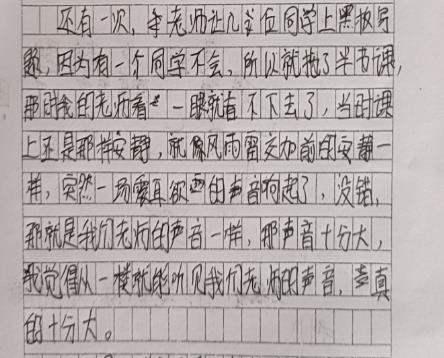 还有一次，李老师让几位同学上黑板写
题，因为有一个同学不会，所以就拖了半节课，
那时我的老师看一眼就看不下去了，当时课
上还是那样安静，就像风雨雷交加前的安静一
样，突然一场震耳欲的声音响起了，没错，
那就是我们老师的声音一样，那声音十分大，
我觉得从一楼就能听见我们老师的声音，真
的十分大。